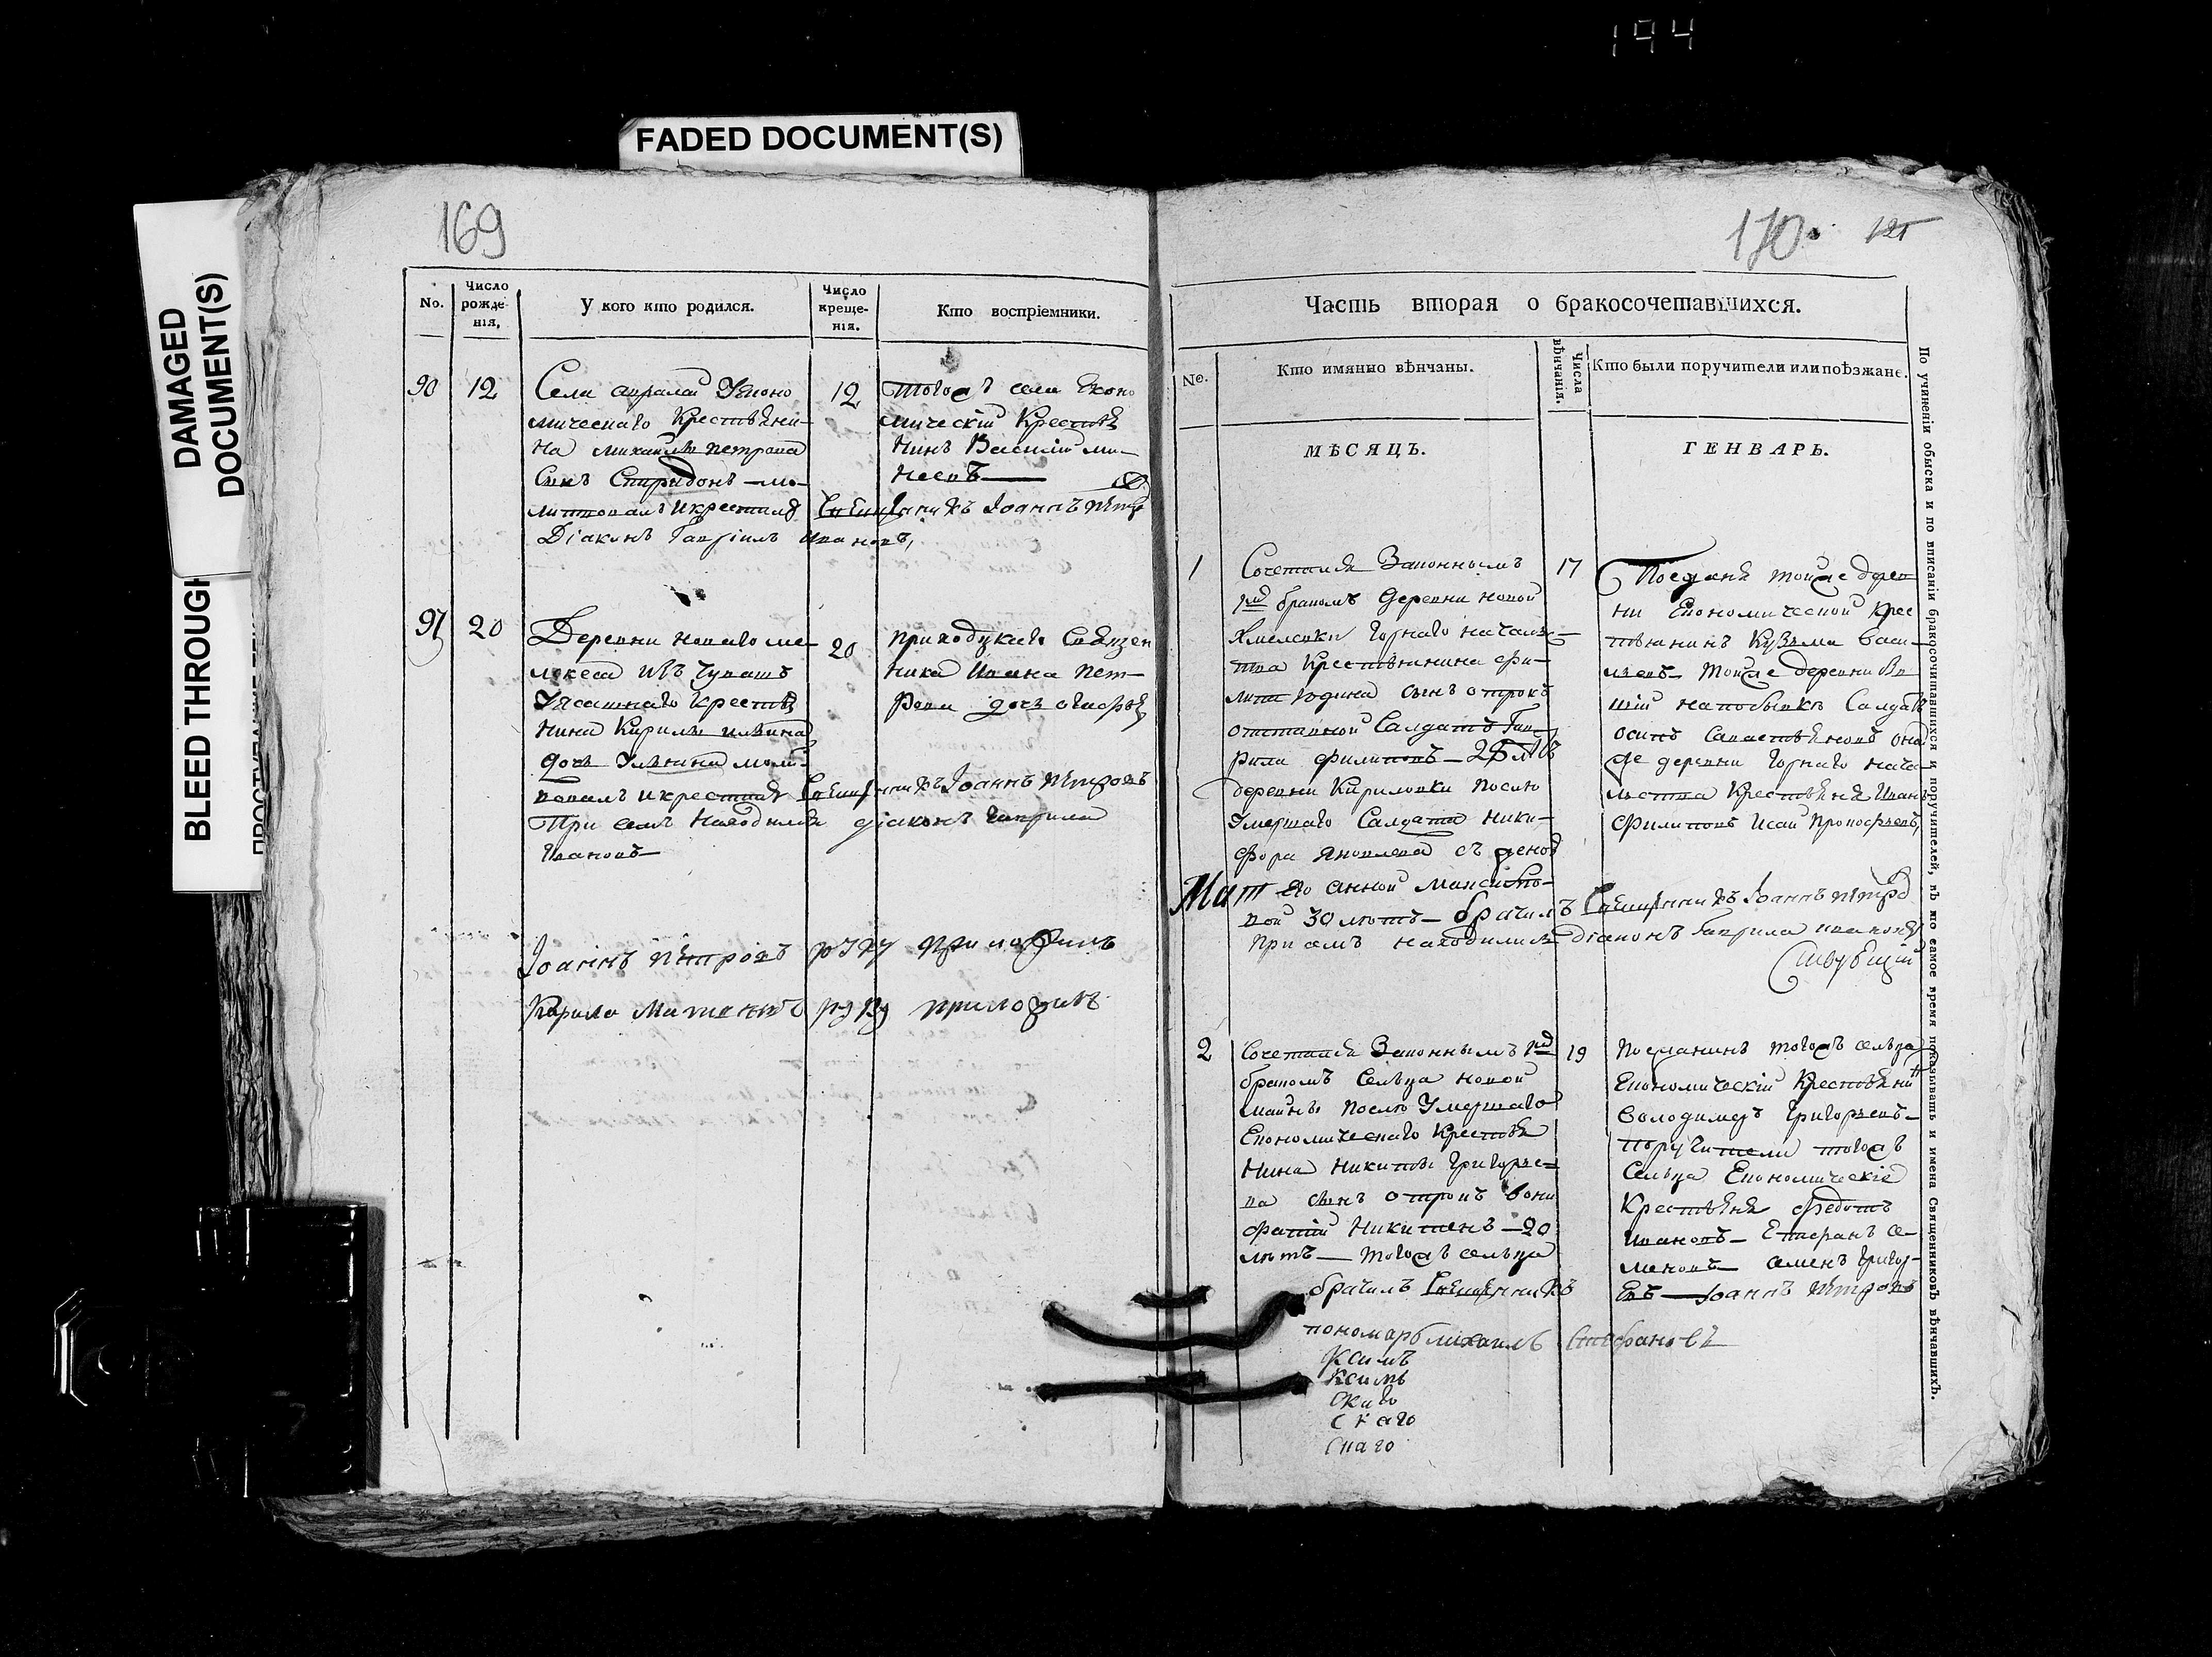 194
FADED DOCUMENT(S)
DAMAGED
DOCUMENT(S)
BLEED THROUGH
169
No.
Число
рожде-
нія.
У кого кто родился.
Число
креще-
нія.
Кто воспріемники.
90
12
Села
мическаго Крестьяни-
на михаила петрова
Сынъ Спиридонъ — мо-
литвовалъ и крестилъ Священникъ Іоаннъ Петр
Діаконъ Гавріилъ Ивановъ,
12
тогожъ села Еконо
мическій Крестья
нинъ Василій Ми-
неевъ
91
20
Деревни новаго ме-
лекеса изъ Чувашъ
Ясашнаго крестья
нина Кирила
дочь Ульяния моли-
вовалъ и крестилъ Священникъ Іоаннъ Петровъ
При семъ находился діаконъ Гаврила
Ивановъ
20
приходскаго Священ
ника Ивана Пет-
рова дочь
Іоаннъ Петровъ руку приложилъ
Кирила руку приложилъ
170.
121
Часть вторая о бракосочетавшихся.
No.
Кто имянно вѣнчаны.
Числа
вѣнчанія.
Кто были поручители или поѣзжане.
МѢСЯЦЪ.
ГЕНВАРЬ.
1
Сочетался Законнымъ
бракомъ деревни новой
Хмелевки Горнаго началь-
ства Крестьянина Фи-
липа Юдина сынъ отрокъ
отставной Салдатъ Гав-
рила Филиповъ — 25 лѣтъ
деревни Кириловки После
Умершаго Салдата Ники-
фора Яковлева съ женой
его анной Максимо-
вой 30 летъ — брачилъ Священникъ Іоаннъ Петров
При семъ находились Діаконъ Гаврила Ивановъ
17
Поезжаня тойже дерев
ни Економической Крес
тьянинъ Кузьма Васи-
льевъ тойже деревни
Салдатъ
Осипъ Савастьяновъ она
же деревни Горнаго нача
льства Крестьяня Иванъ
Филиповъ Исай Прокофьевъ,
2
Сочетался Законнымъ
бракомъ Сельца новой
майны После Умершаго
Економическаго Крестья
нина Никиты Григорье-
ва сынъ отрокъ Вони
фатій Никитенъ — 20
летъ — тогожъ сельца
брачилъ Священникъ
19
Поезжанинъ тогожъ сельца
Економическій Крестьяни
Володимеръ Григорьевъ —
поручители тогожъ
Сельца Економическіе
Крестьяня Федотъ
Ивановъ — се-
меновъ — Семенъ Григор-
евъ — Іоаннъ Петровъ
пономарь Михаилъ Стефановъ
скаго
скаго
По учиненіи обыска и по вписаніи бракосочитавшихся и поручителей, въ то самое время показывать и имена Священниковъ вѣнчавшихъ.